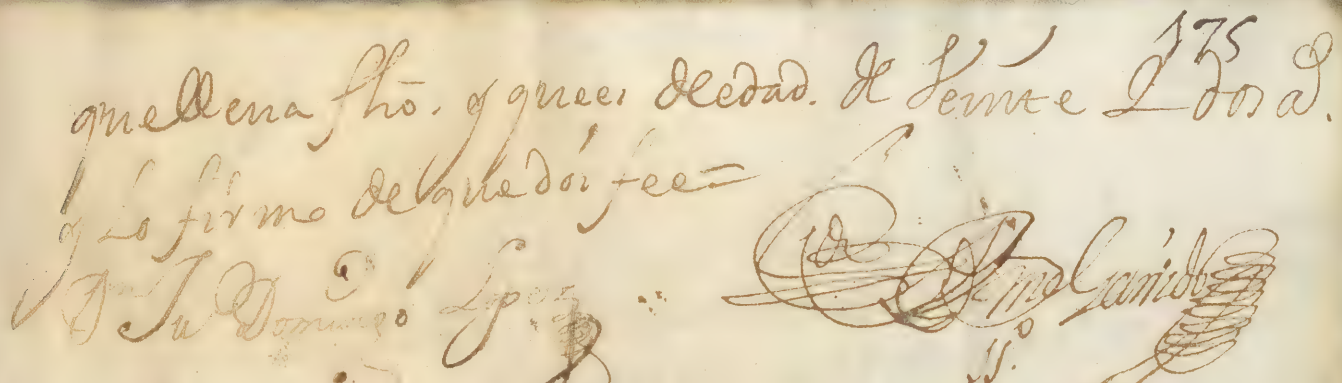 175
quelleva fho. y quees deedad. de Veinte Y dos a.
y Lo firmo de que doi fee=
Domingo Lopez
SS.º